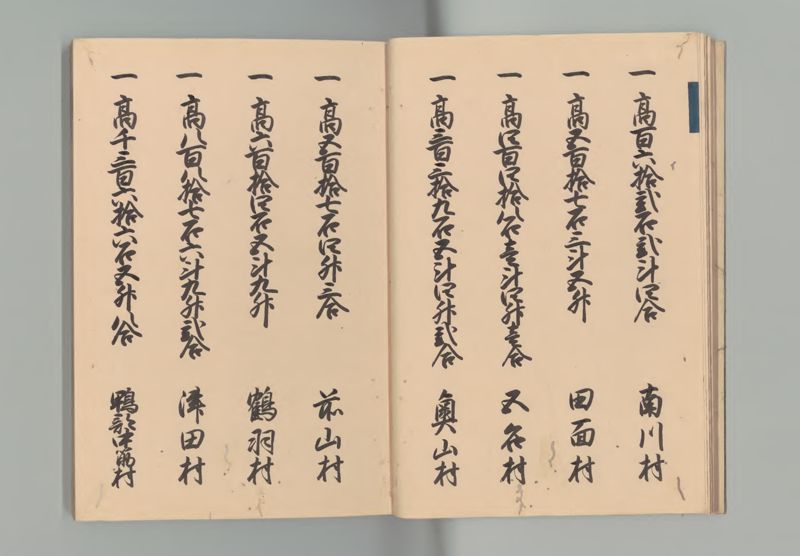 一 高百六拾弐石弐斗四合 南川村
一 高五百拾七石三斗五升 田面村
一 高四百四拾八石壱斗四升壱合 五名村
一 高三百三拾九石五斗四升弐合 奥山村
一 高五百拾七石四升三合 前山村
一 高六百拾四石五斗九升 鶴羽村
一 高八百八拾七石六斗九升弐合 津田村
一 高千三百六拾六石五升八合 鴨部中筋村